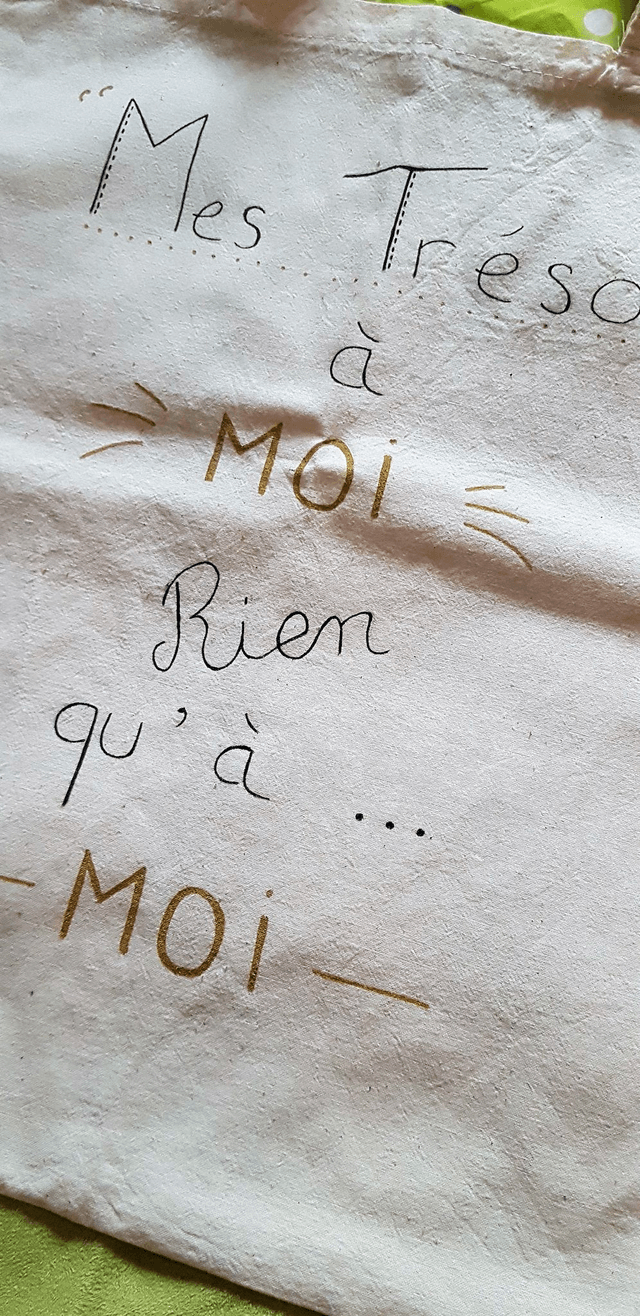 "Mes Tréso
à
MOi
Rien
qu'à ...
— MOi —